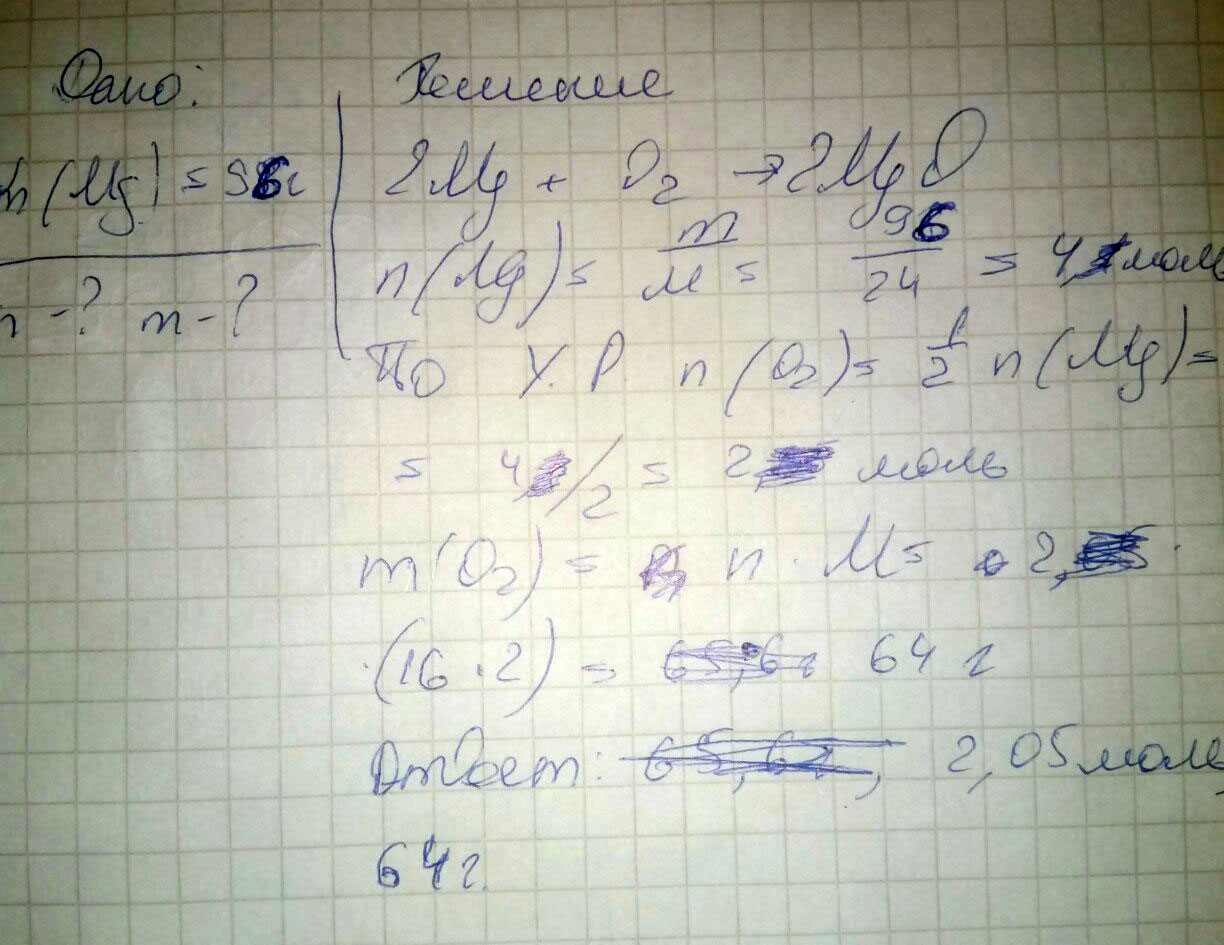 Дано:
m(Mg) = 96г
n-? m-?
Решение
2Mg + O₂ → 2MgO
n(Mg) = m/M = 96/24 = 4 моль
По У.Р. n(O₂) = 1/2 n(Mg) =
= 4/2 = 2, моль
m(O₂) = n · M = 2, ·
·(16·2) = 65,6г 64 г
Ответ: 65,6г, 2,05 моль,
64г.